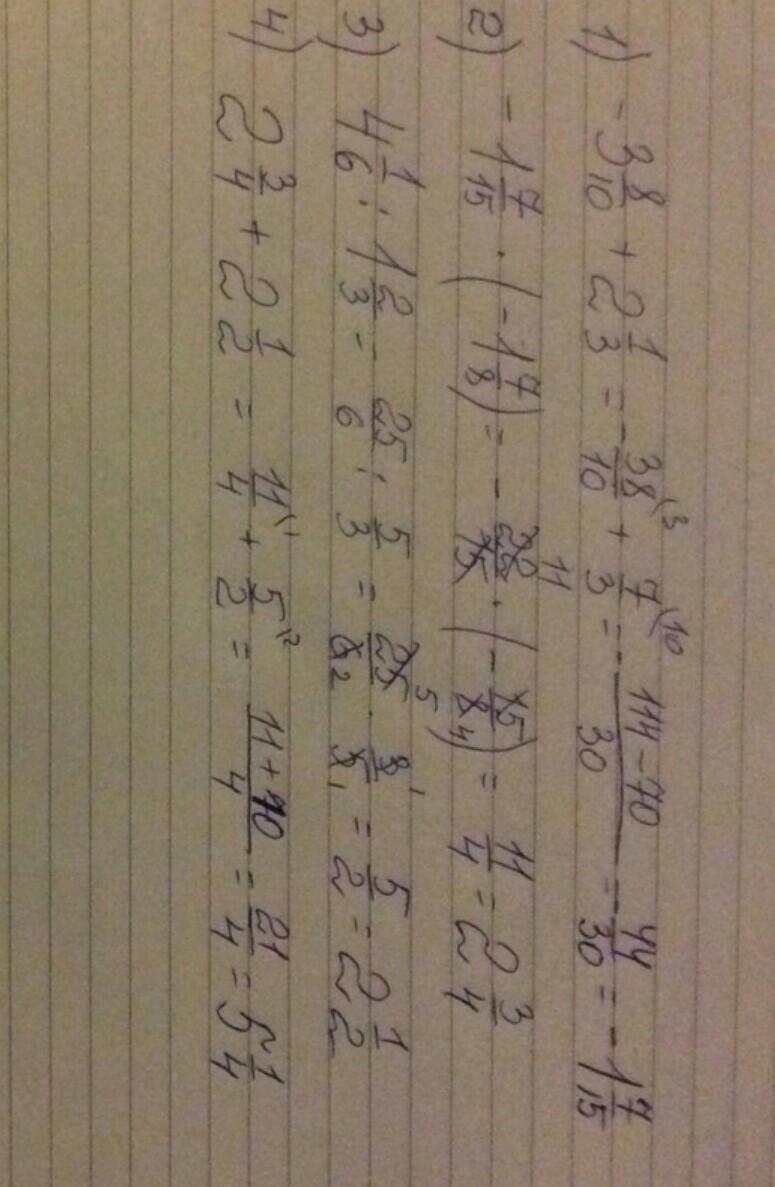 1) -3 8/10 + 2 1/3 = - 38/10 \3 + 7/3 \10 = - (114-70)/30 = - 44/30 = -1 7/15
2) -1 7/15 · (-1 7/8) = - 22/15 11 · (- 15/8 4) = 11/4 = 2 3/4
3) 4 1/6 : 1 2/3 = 25/6 : 5/3 = 25/6 5 2 · 3/5 1 1 = 5/2 = 2 1/2
4) 2 3/4 + 2 1/2 = 11/4 \1 + 5/2 \2 = (11+10)/4 = 21/4 = 5 1/4